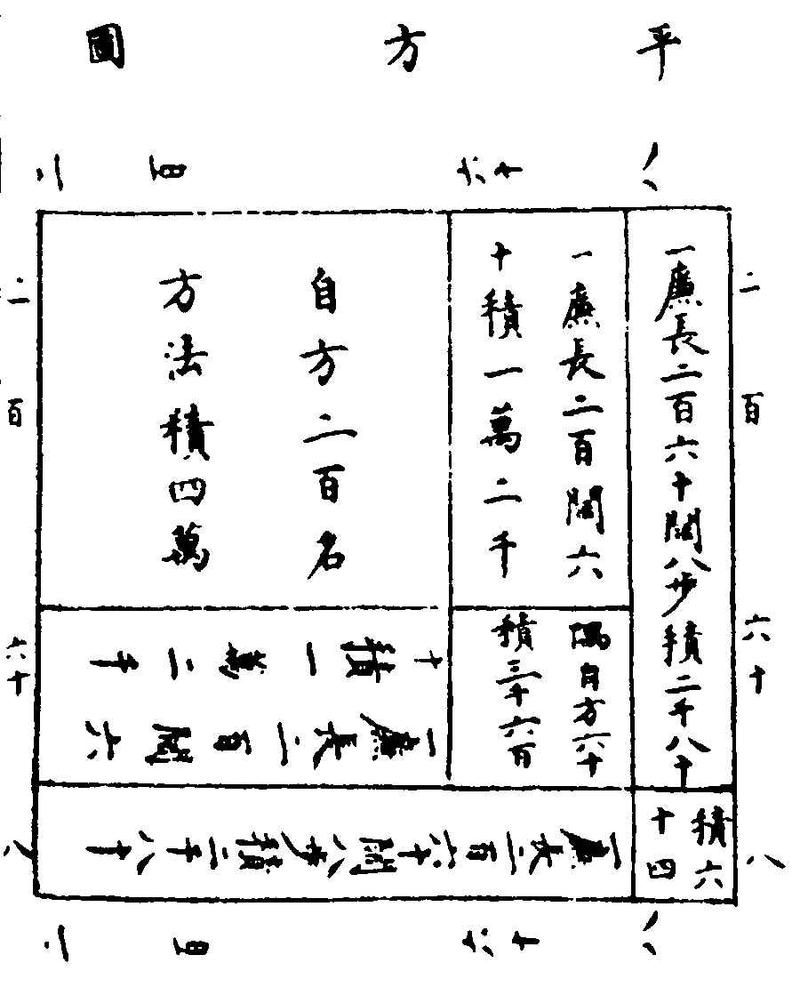 平方圖
八
六十
二百
二百
六十
八
一廉長二百六十闊八步積二千八十
一廉長二百闊六
十積一萬二千
自方二百名
方法積四萬
隅自方六十
積三千六百
一廉長二百闊六
十積一萬二千
積六
十四
一廉長二百六十闊八步積二千八十
二百
六十
八
八
六十
二百